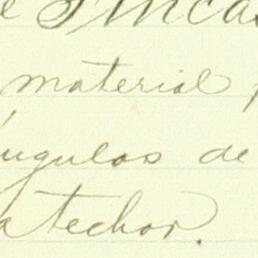 e Fincas
material p
ángulos de
a techar.